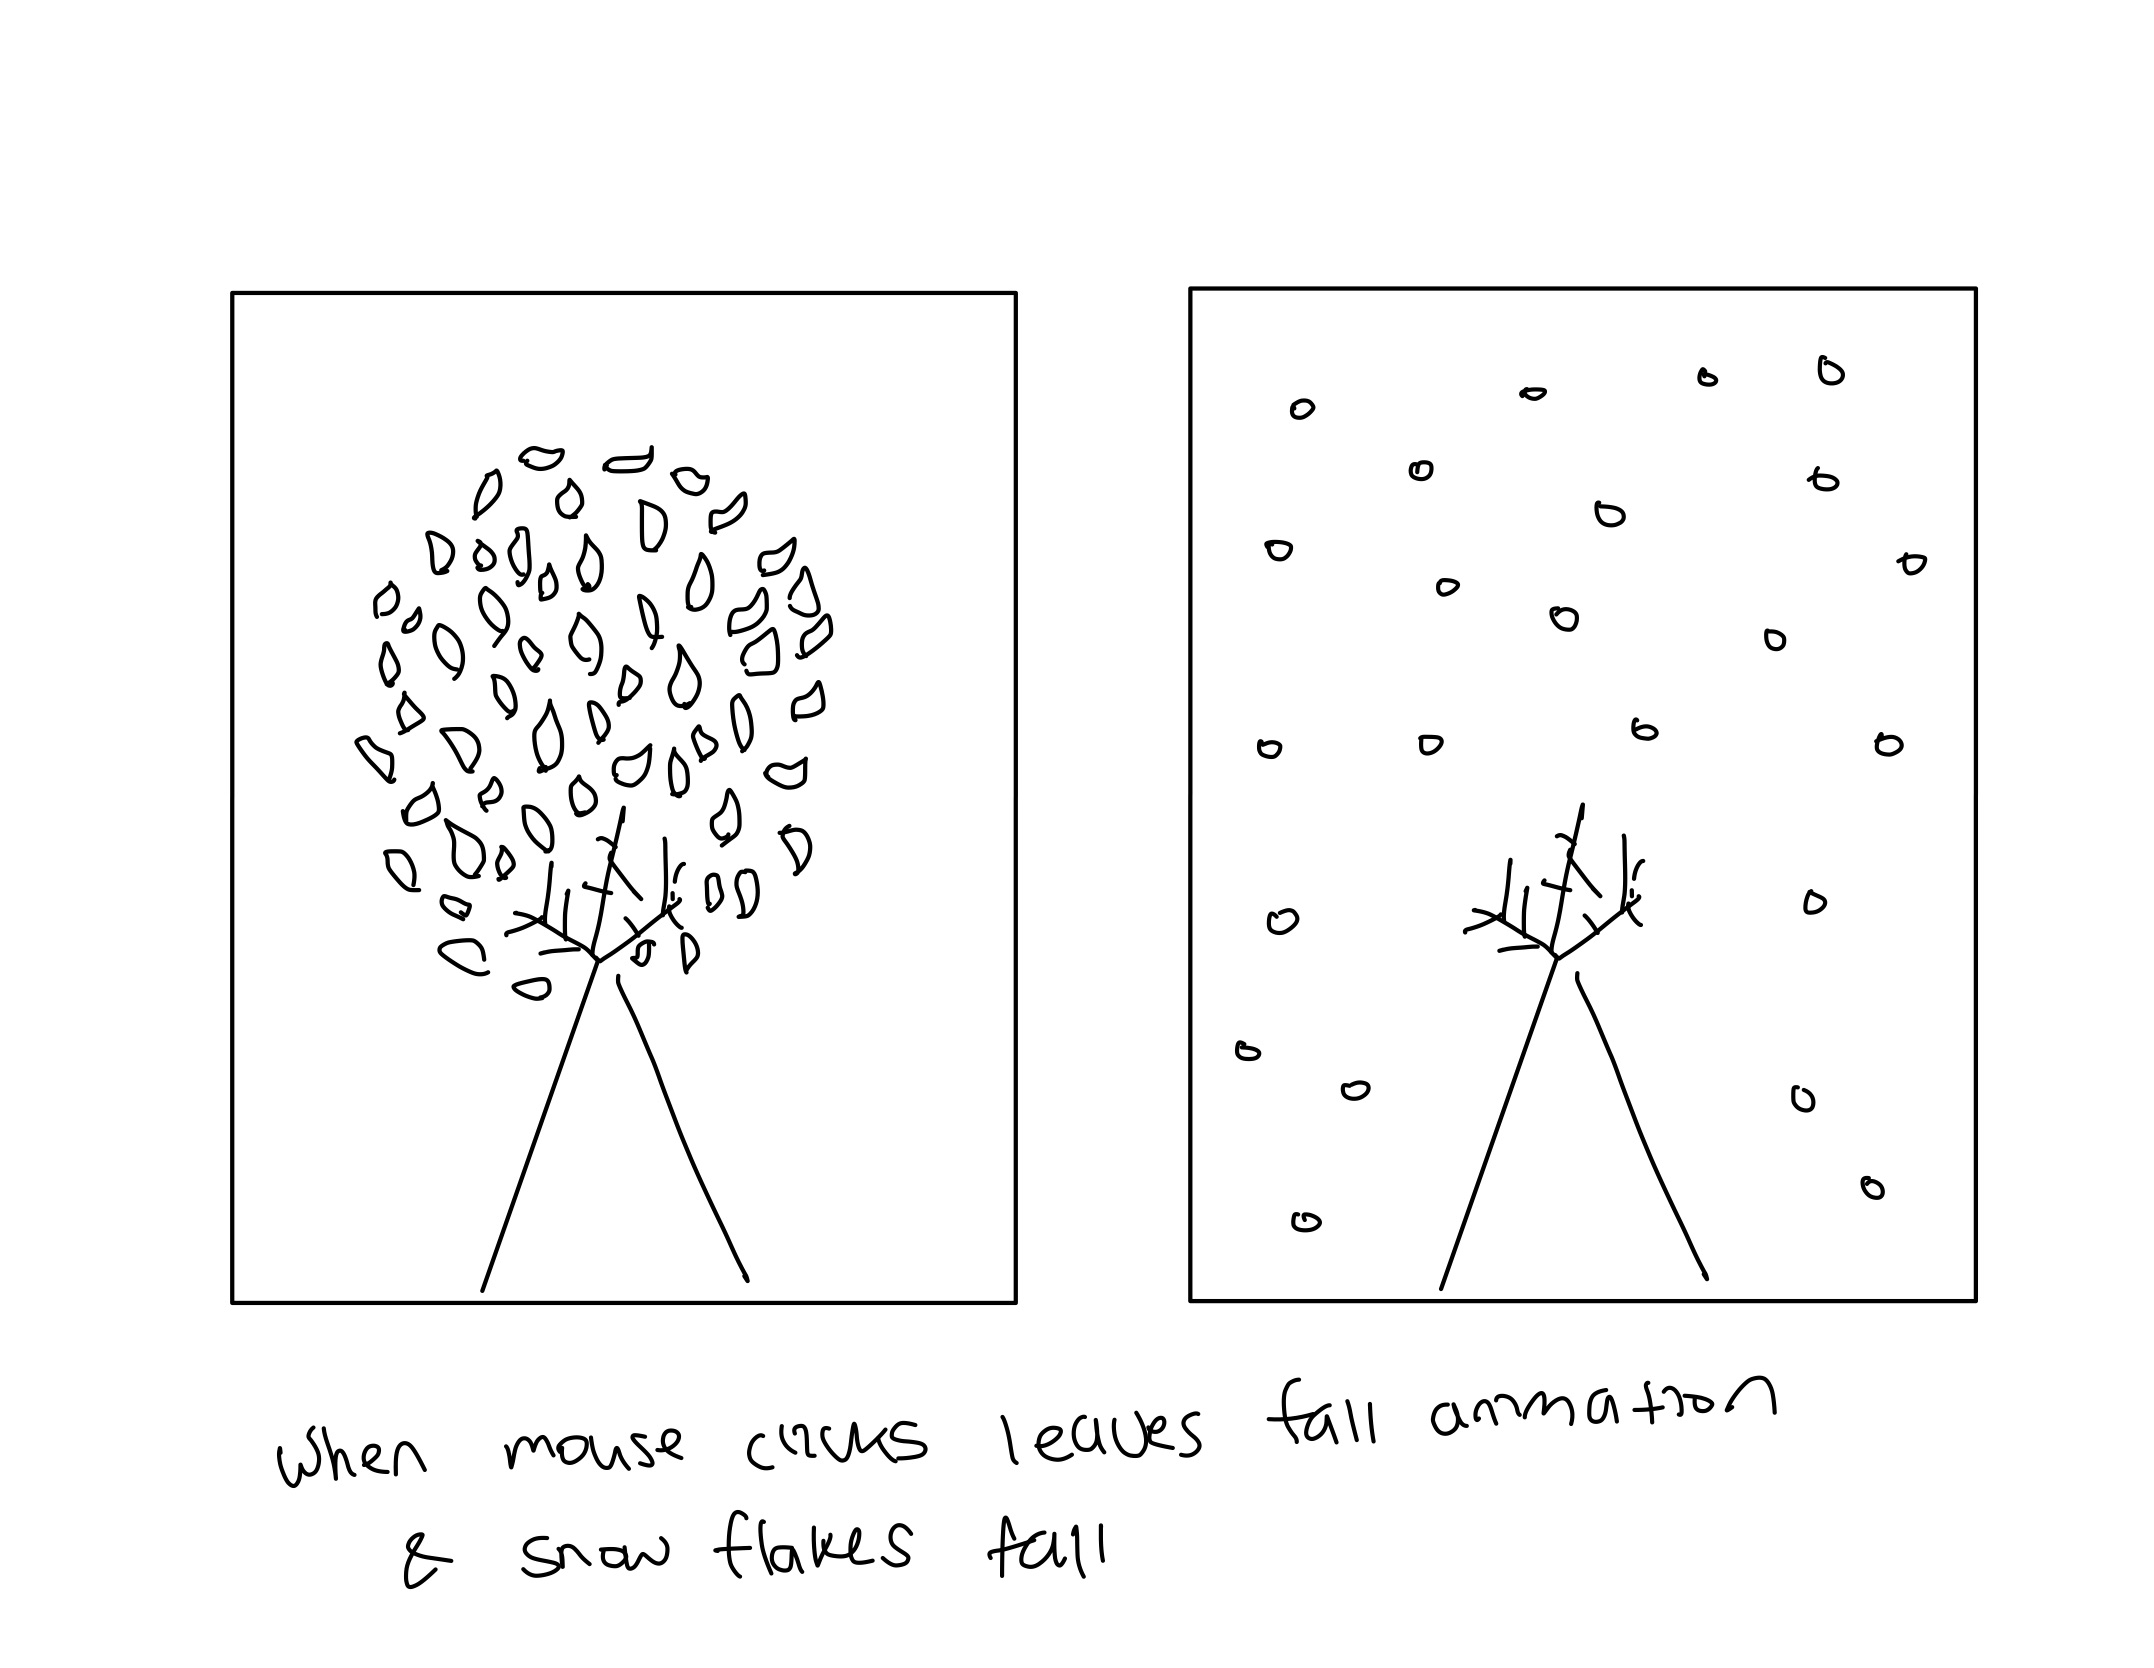 when mouse clicks leaves fall animation
& snow flakes fall